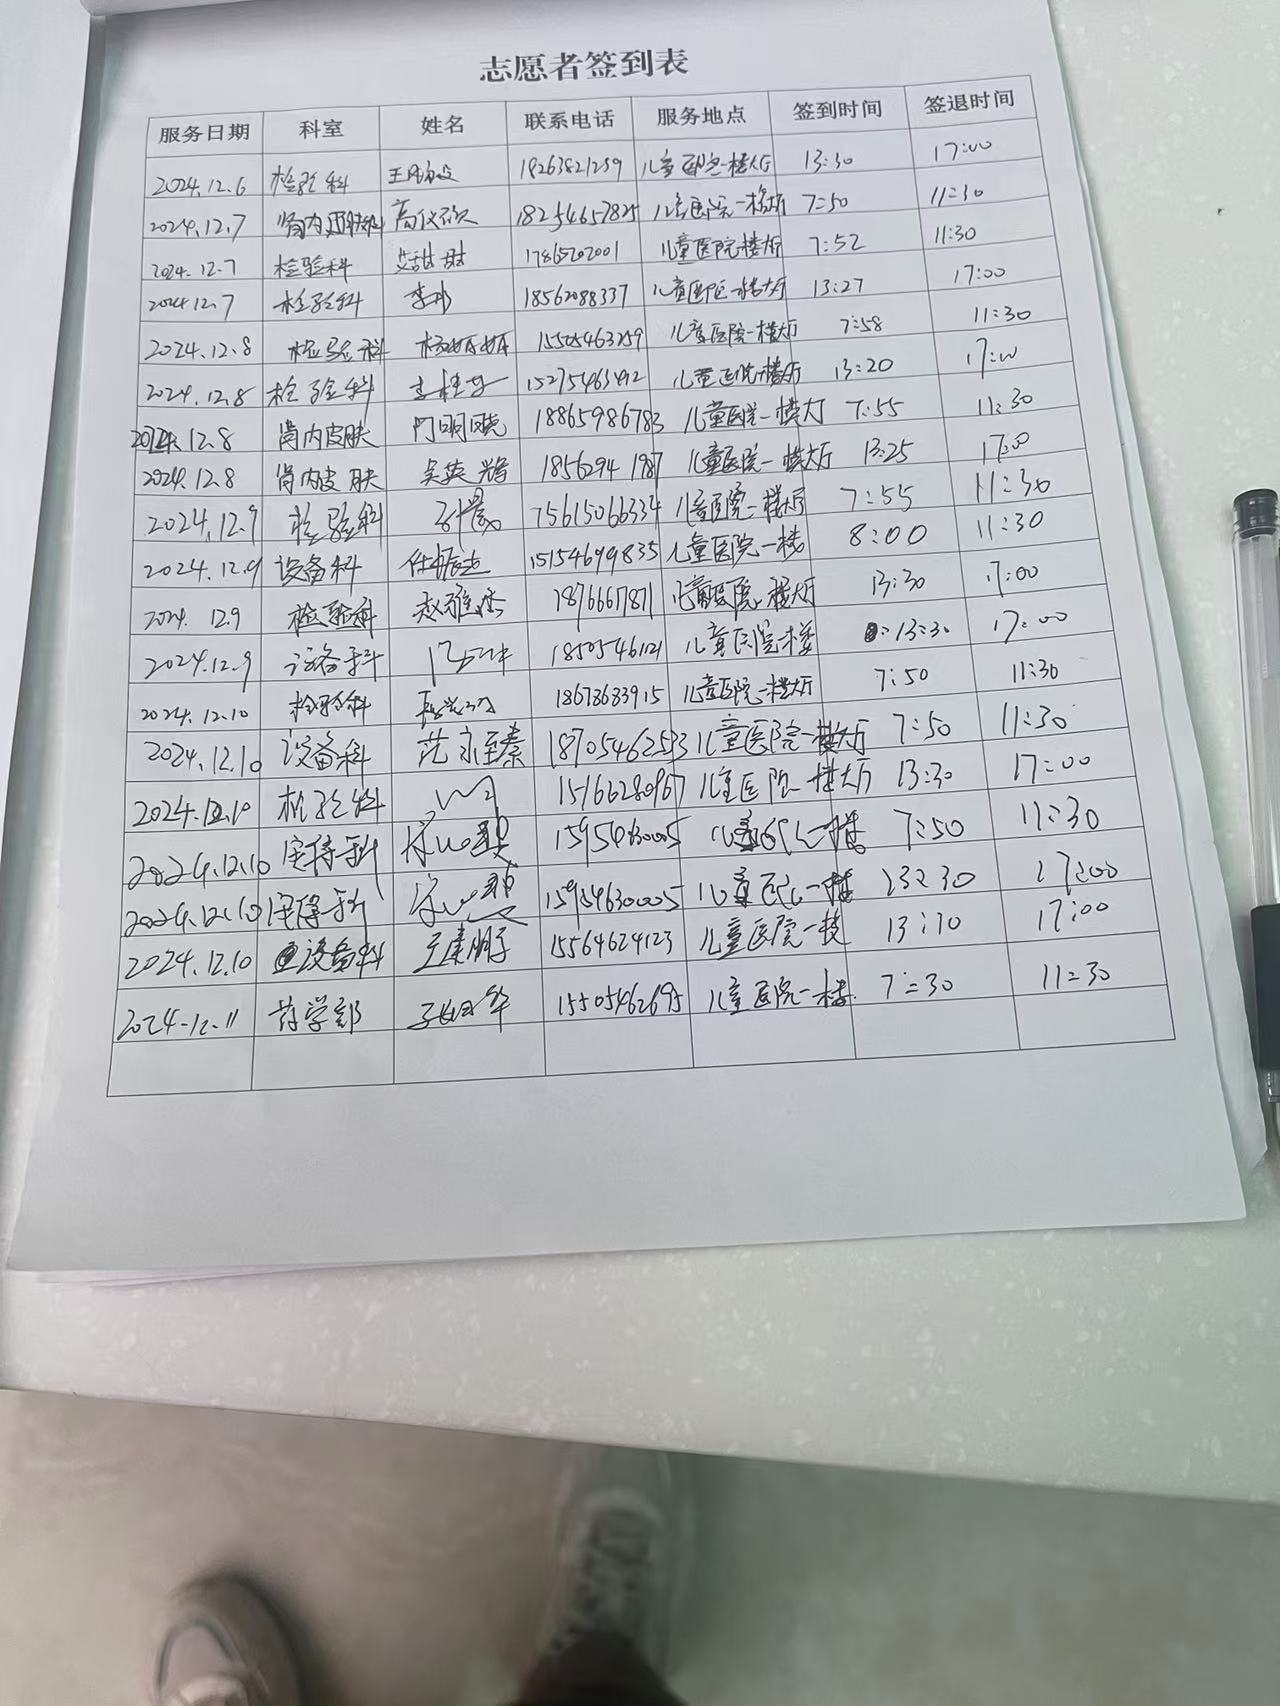 志愿者签到表
服务日期 科室 姓名 联系电话 服务地点 签到时间 签退时间
2024.12.6 检验科 18263821259 儿童医院一楼大厅 13:30 17:00
2024.12.7 肾内皮肤科 18254657825 儿童医院一楼大厅 7:50 11:30
2024.12.7 检验科 17865202001 儿童医院楼大厅 7:52 11:30
2024.12.7 检验科 18562088337 儿童医院一楼大厅 13:27 17:00
2024.12.8 检验科 杨妍妍 15505463259 儿童医院一楼大厅 7:58 11:30
2024.12.8 检验科 15275463492 儿童医院一楼大厅 13:20 17:00
2024.12.8 肾内皮肤 门明晓 18865986783 儿童医院一楼大厅 7:55 11:30
2024.12.8 肾内皮肤 吴英 1856294 1987 儿童医院一楼大厅 13:25 17:00
2024.12.9 检验科 15615066334 儿童医院一楼大厅 7:55 11:30
2024.12.9 设备科 任振志 15154699835 儿童医院一楼 8:00 11:30
2024. 12.9 检验科 1876667871 儿童医院一楼大厅 13:30 17:00
2024.12.9 设备科 1850546121 儿童医院一楼 13:30 17:00
2024.12.10 检验科 18678633915 儿童医院一楼大厅 7:50 11:30
2024.12.10 设备科 范永至秦 18705462523 儿童医院一楼大厅 7:50 11:30
2024.12.10 检验科 15166280967 儿童医院一楼大厅 13:30 17:00
2024.12.10 15954630005 儿童医院一楼 7:50 11:30
2024.12.10 15954630005 儿童医院一楼 13:30 17:00
2024.12.10 设备科 15564624123 儿童医院一楼 13:10 17:00
2024.12.11 药学部 15505462695 儿童医院一楼 7:30 11:30